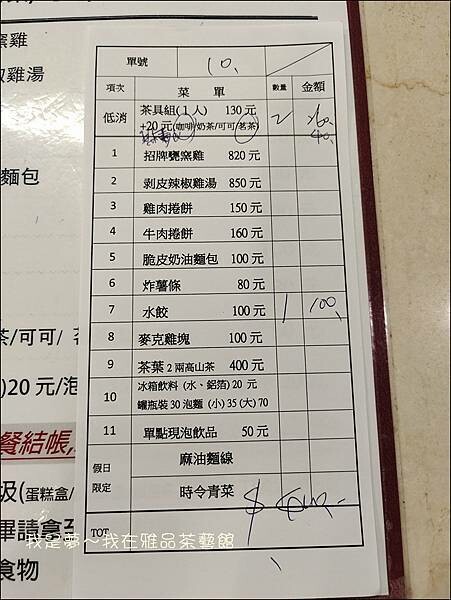 窯雞
椒雞湯
麵包
茶/可可/ 茗
)20 元/泡
餐結帳,
圾(蛋糕盒/
畢請拿至
食物
單號 10.
項次 菜 單 數量 金額
低消 茶具組(1 人) 130 元 2 260
+20 元(咖啡/奶茶/可可/茗茶) 40.
1 招牌甕窯雞 820 元
2 剝皮辣椒雞湯 850 元
3 雞肉捲餅 150 元
4 牛肉捲餅 160 元
5 脆皮奶油麵包 100 元
6 炸薯條 80 元
7 水餃 100 元 1 100.
8 麥克雞塊 100 元
9 茶葉 2 兩高山茶 400 元
10 冰箱飲料 (水、鋁箔) 20 元
罐瓶裝 30 泡麵 (小) 35 (大) 70
11 單點現泡飲品 50 元
假日
限定
麻油麵線
時令青菜
TOT
我是夢~我在雅品茶藝館